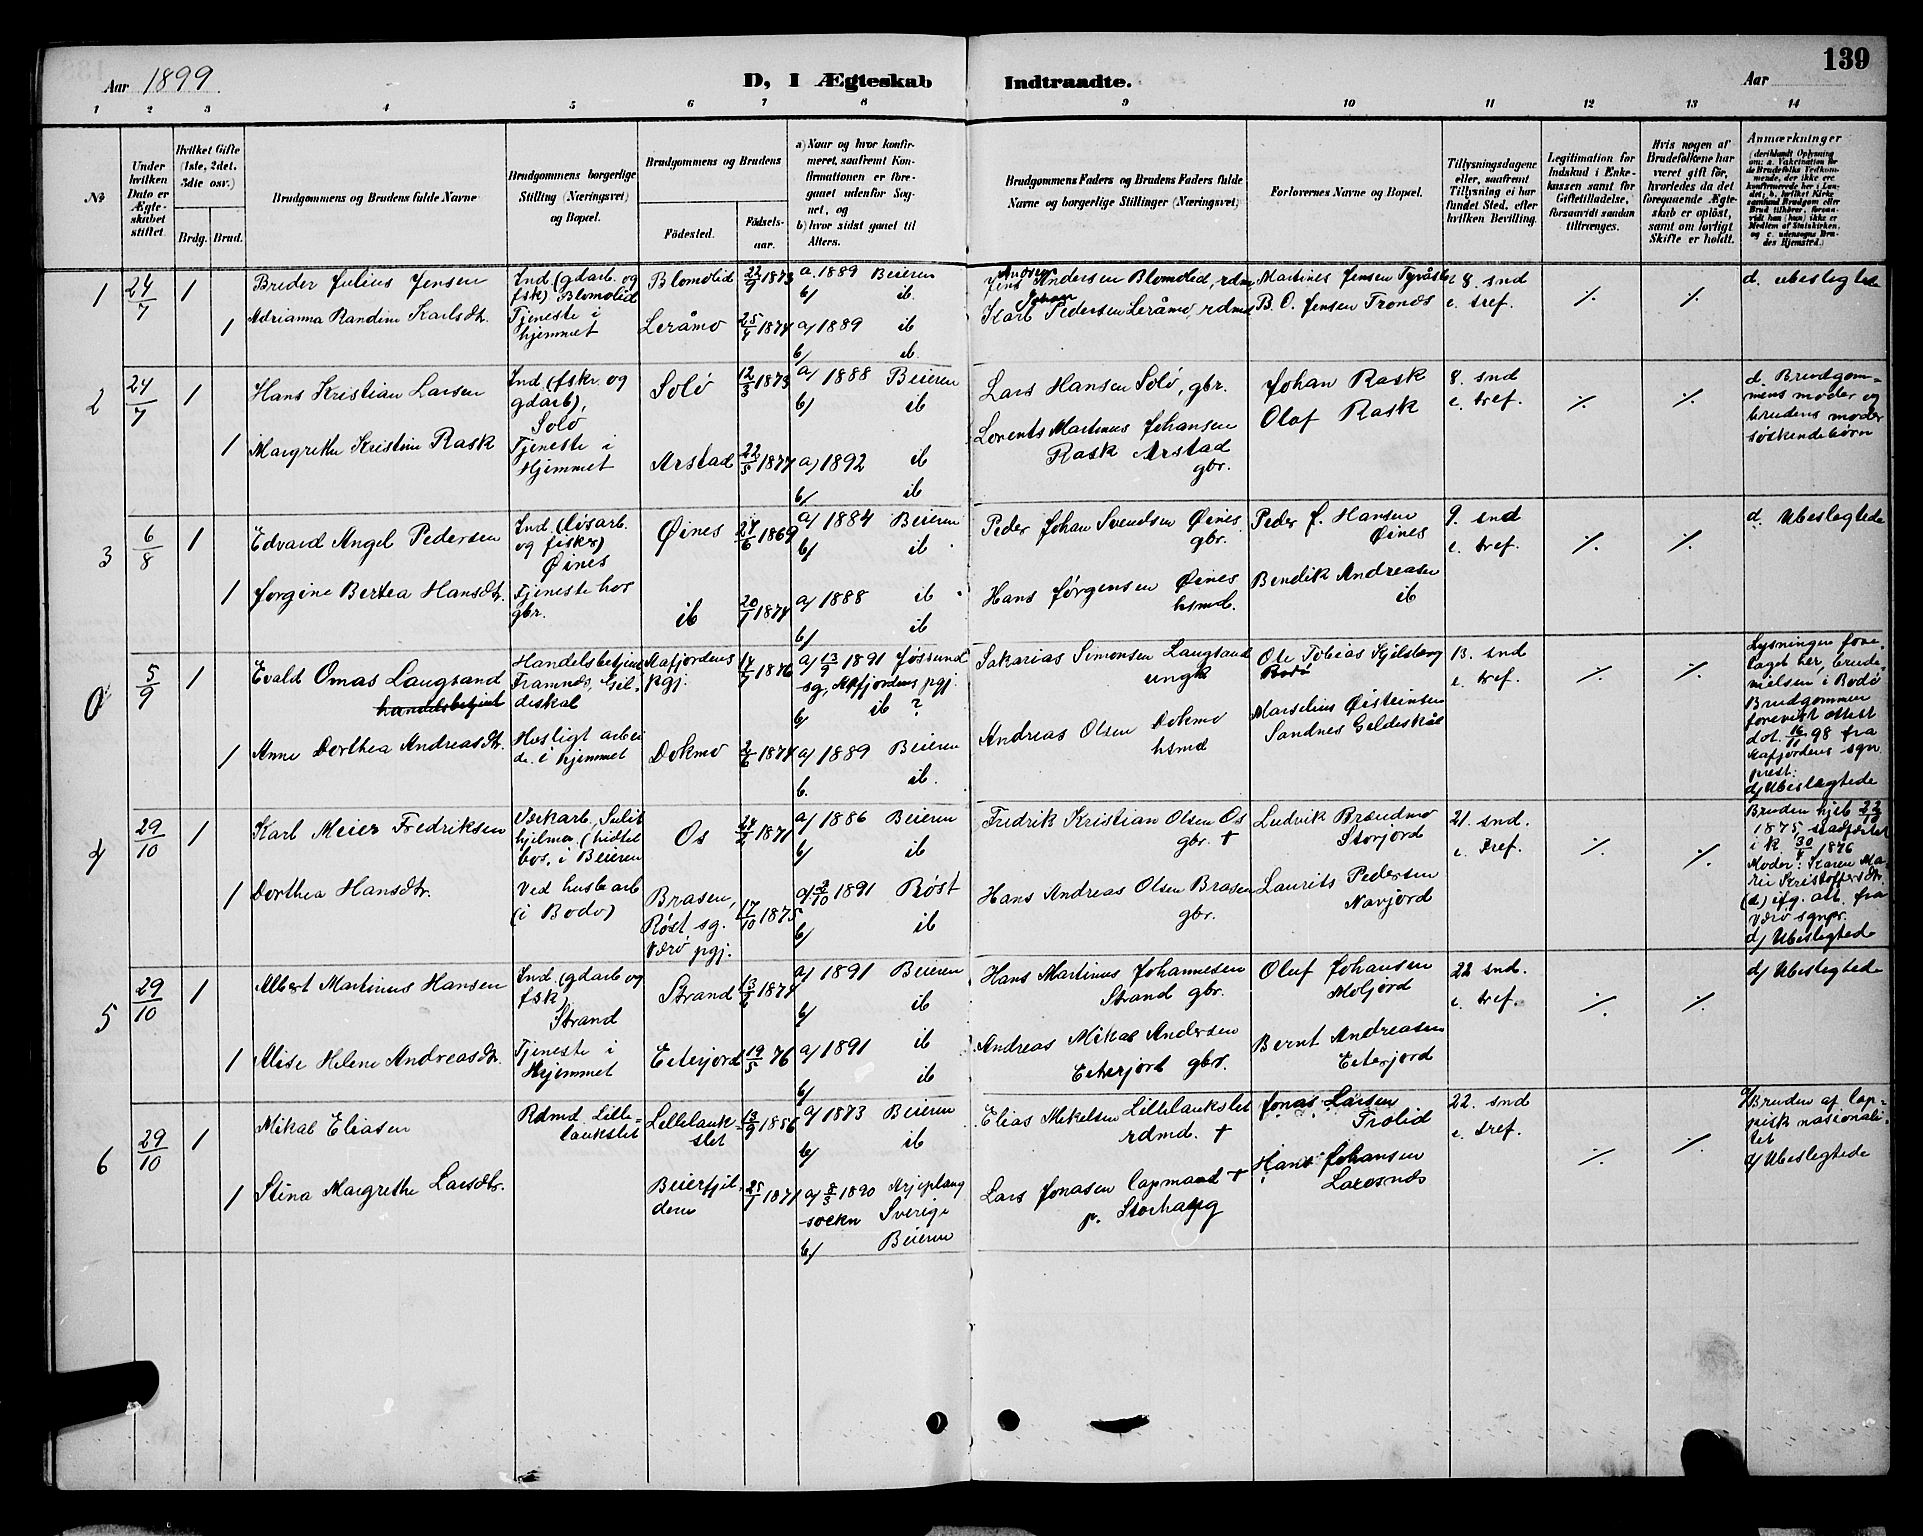 139
Aar 1899.
D, I Ægteskab Indtraadte.
Aar
1 2 3 4 5 6 7 8 9 10 11 12 13 14
No
Under hvilken Dato er Ægteskabet stiftet.
Hvilket Gifte (1ste, 2det, 3die osv.)
Brdg. Brud.
Brudgommens og Brudens fulde Navne
Brudgommens borgerlige Stilling (Næringsvei) og Bopæl.
Brudgommens og Brudens
Fødested.
Fødselsaar.
a) Naar og hvor konfirmeret, saafremt Konfirmationen er foregaaet udenfor Sognet, og
b) hvor sidst gaaet til Alters.
Brudgommens Faders og Brudens Faders fulde Navne og borgerlige Stillinger (Næringsvei)
Forlovernes Navne og Bopæl.
Tillysningsdagene eller, saafremt Tillysning ei har fundet Sted, efter hvilken Bevilling.
Legitimation for Indskud i Enkekassen samt for Giftetilladelse, forsaavidt saadan tiltrænges.
Hvis nogen af Brudefolkene har været gift før, hvorledes da det foregaaende Ægteskab er opløst, samt om lovligt Skifte er holdt.
Anmærkninger
(deriblandt Oplysning om: a. Vakcination for de Brudefolks Vedkommende, der ikke ere konfirmerede her i Landet; b. hvilket Kirkesamfund Brudgom eller Brud tilhører, forsaavidt han (hun) ikke er Medlem af Statskirken, og c. udensogns Brudes Hjemsted.)
1 24/7 1 Breder Julius Jensen
Ind (gdarb. og fsk) Blomolid
Blomolid 22/9 1873 a. 1889 Beieren
b/ ib.
Jens Andersen Blomolid, rdm
Martines Jensen
8. snd
e. tref.
d. ubeslegtede
1 Adrianna Randine Karlsdtr.
Tjeneste i hjemmet
Leråmo 25/4 1874 a/ 1889 ib
b/ ib.
Karl Johan Pedersen Leråmo, rdmd
B. O. Jensen Tronds
2 24/7 1 Hans Kristian Larsen
Ind. (fskr. og gdarb), Solø
Solø 12/3 1873 a/ 1888 Beieren
b/ ib
Lars Hansen Solø, gbr.
Johan Rask
8. snd
e. tref.
d. Brudgommens moder og brudens moder søskendebørn
1 Margrethe Kristine Rask
Tjeneste i Hjemmet
Arstad 22/5 1877 a/ 1892 ib
b/ ib
Lorents Martinus Johansen Rask Arstad gbr.
Olaf Rask
3 6/8 1 Edvard Angel Pedersen
Ind. (løsarb. og fiskr) Øines
Øines 27/6 1869 a/ 1884 Beieren
b/ ib
Peder Johan Svendsen Øines gbr.
Peder J. Hansen Øines
9. snd
e. tref.
d. Ubeslegtede
1 Jørgine Bertea Hansdtr.
Tjeneste hos gbr.
ib 20/7 1874 a/ 1888 ib
b/ ib
Hans Jørgensen Øines hsmd.
Bendik Andreasen ib
0 5/9 1 Evald Omas Laugsand
handelsbetjent
Handelsbetjent Framnæs, Gildeskal
Aafjordens pgj. 14/7 1876 a/ 13/9 1891 Jøssund sg, Aafjordens pgj.
b/ ib ?
Sakarias Simonsen Laugsand ungk
Ole Tobias Kjelsberg Bodø
13. snd
e. tref.
Lysningen forelaget her, brudevielsen i Bodø Brudgommen forevist attest dat. 16/11 98 fra Aafjordens sgnprest.
d/ Ubeslegtede
1 Anne Dorthea Andreasdtr.
Husligt arbeide. i hjemmet
Dokmo 2/6 1874 a/ 1889 Beieren
b. ib.
Andreas Olsen Dokmo hsmd
Marselius Øisteinsen Sandnes Gildeskål
4 29/10 1 Karl Meier Fredriksen
Verkarb. Sulithjelma. (hidtil bos. i Beieren
Os 24/2 1871 a/ 1886 Beieren
b/ ib
Fredrik Kristian Olsen Os gbr. †
Ludvik Brændmo Storjord
21. snd.
e. Tref.
Bruden hjdb 22/12 1875, stadfæstet i k 30/4 1876 Moder: Karen Marie Kristoffersdtr. (d) efg. att. fra Værø sgnpr.
d/ Ubeslegtede
1 Dorthea Hansdtr.
Ved husl. arb (i Bodø)
Brasen, Røst sg. Værø pgj. 17/10 1875 a/ 2/10 1891 Røst
b/ ib
Hans Andreas Olsen Brasen gbr.
Laurits Pedersen Navjord
5 29/10 1 Albert Martinus Hansen
Ind. (gdarb og fsk) Strand
Strand 13/2 1874 a/ 1891 Beieren
b/ ib
Hans Martinus Johannesen Strand gbr.
Oluf Johansen Moljord
22 snd.
e. tref.
d/ Ubeslegtede
1 Alise Helene Andreasdtr.
Tjeneste i Hjemmet
Eiterjord 19/5 76 a/ 1891 ib
b/ ib
Andreas Mikal Andersen Eiterjord gbr.
Bernt Andreasen Eiterjord
6 29/10 1 Mikal Eliasen
Rdmd Lillelaukslet
Lillelaukslet 13/9 1856 a/ 1873 Beieren
b/ ib
Elias Mikelsen Lillelaukslet rdmd. †
Jonas Larsen Trolid
22. snd
e. tref.
Bruden af lappisk nasionalitet
d/ Ubeslegtede
1 Stina Margrethe Larsdtr.
Beierfjeldene 25/7 1871 a/ 8/3 1890 Arjeplaug socken Sverige
b/ Beieren
Lars Jonasen lapmand † p. Storhaug
Hans Johansen Larosnæs